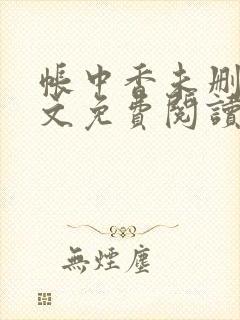 帳中香未刪
文免費閱讀
無煙塵